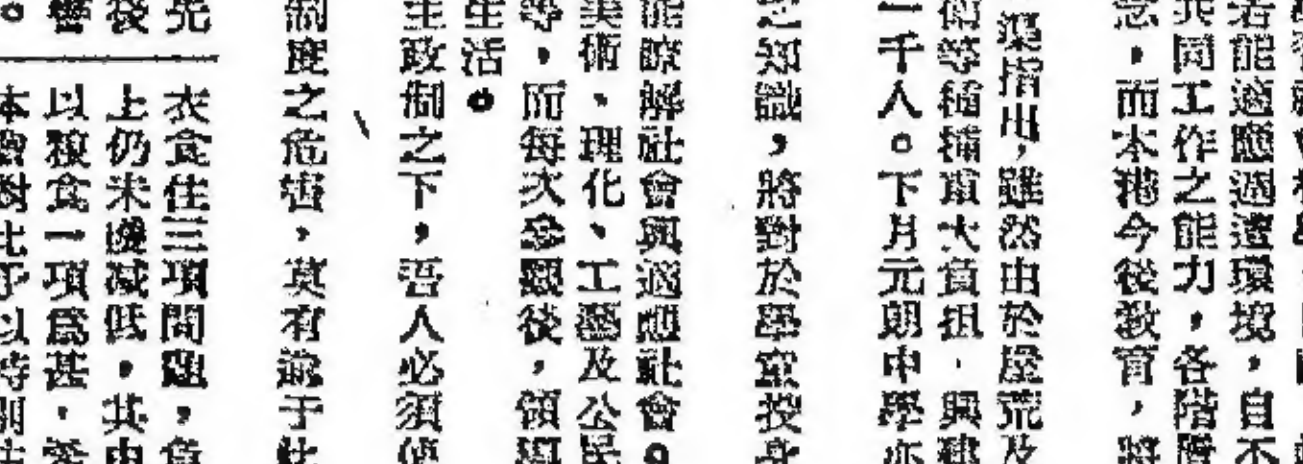 若能適應週遭環境，自不
共同工作之能力，各階層
念，而本港今後教育，將
渠指出，雖然由於屋荒及
衛等種種重大負担，興建
一千人。下月元朗中學亦
之知識，將對於學童投身
能瞭解社會與適應社會。
美術、理化、工藝及公民
等，而每次參觀後，領導
生活。
主政制之下，吾人必須使
制度之危害，莫有逾于此
先
後
衣食住三項問題，負
上仍未獲減低，其中
以糧食一項為甚，
本會對此予以特別注